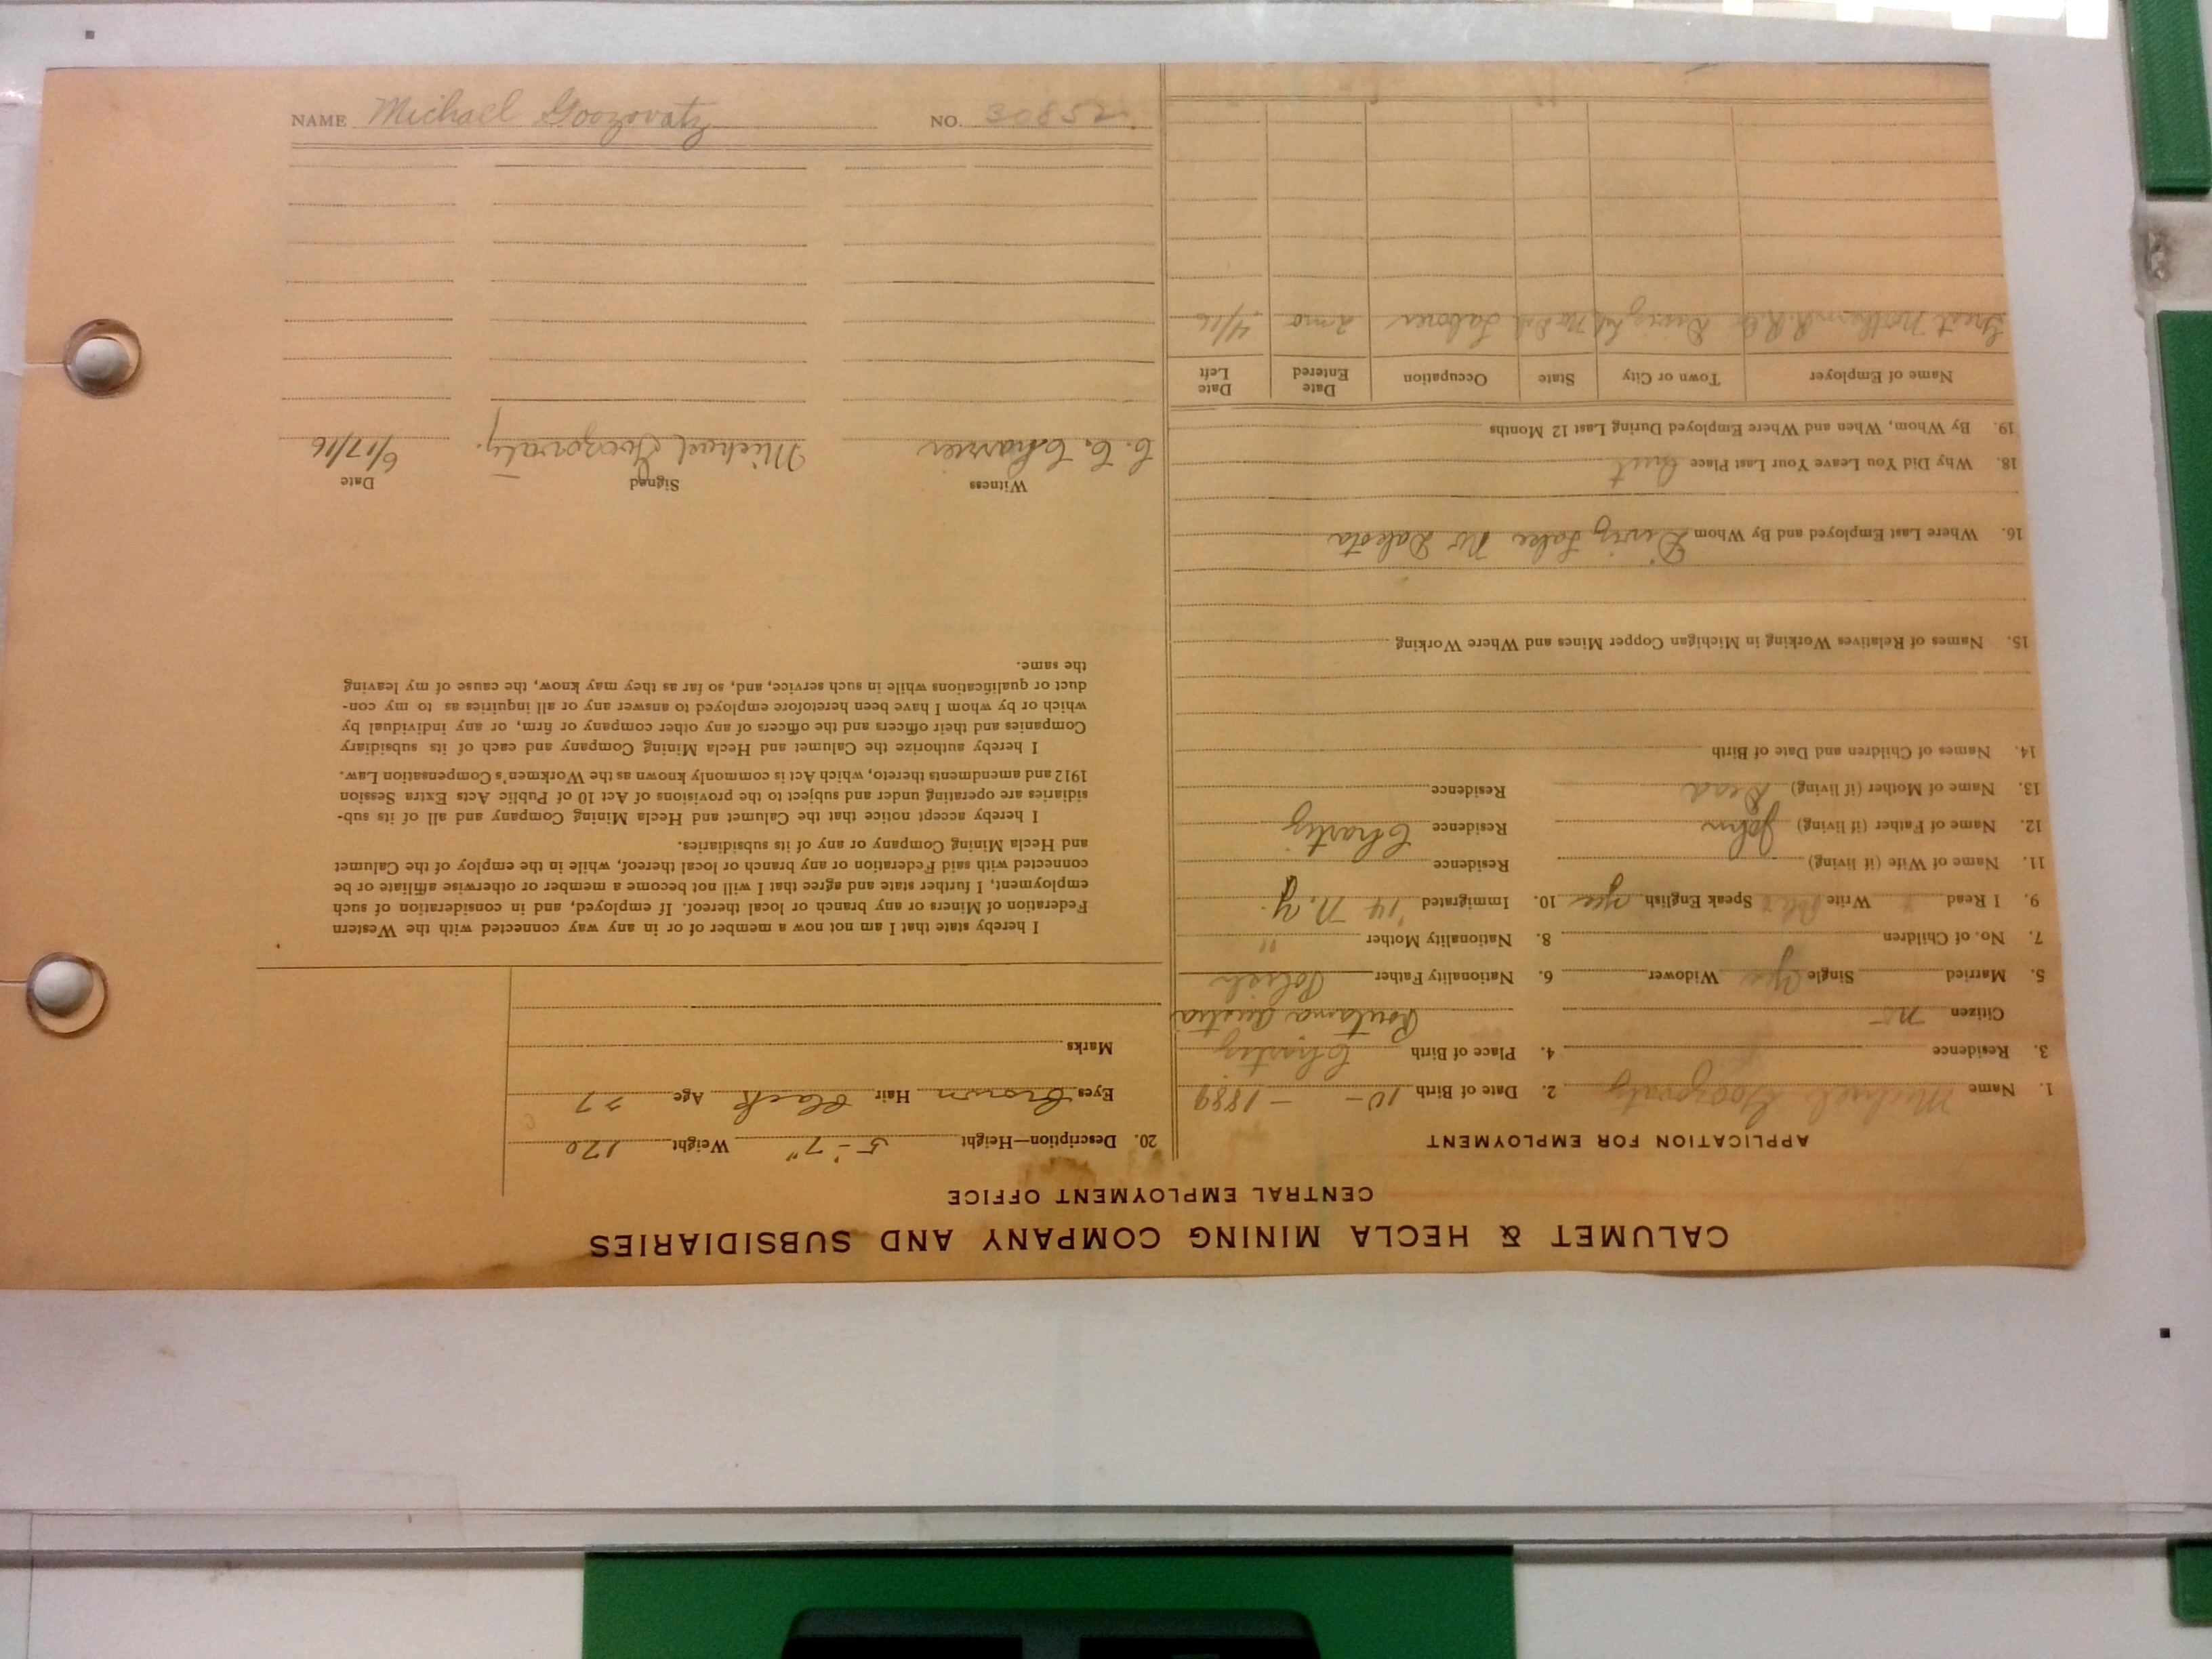 CALUMET & HECLA MINING COMPANY AND SUBSIDIARIES
CENTRAL EMPLOYMENT OFFICE
APPLICATION FOR EMPLOYMENT
1. Name Michael Goozovatz 2. Date of Birth 10 - - 1889
3. Residence 4. Place of Birth
Citizen no Austria
5. Married Single yes Widower 6. Nationality Father Polish
7. No. of Children 8. Nationality Mother "
9. I Read Write Speak English yes 10. Immigrated '14 N.Y.
11. Name of Wife (if living) Residence
12. Name of Father (if living) John Residence
13. Name of Mother (if living) Dead Residence
14. Names of Children and Date of Birth
15. Names of Relatives Working in Michigan Copper Mines and Where Working
16. Where Last Employed and By Whom Lake No Dakota
18. Why Did You Leave Your Last Place Quit
19. By Whom, When and Where Employed During Last 12 Months
Name of Employer Town or City State Occupation Date Entered Date Left
Great Northern R.R. Co No Dak Laborer 2 mo 4/16
20. Description—Height 5-'7" Weight 170
Eyes Brown Hair Black Age 27
Marks
I hereby state that I am not now a member of or in any way connected with the Western
Federation of Miners or any branch or local thereof. If employed, and in consideration of such
employment, I further state and agree that I will not become a member or otherwise affiliate or be
connected with said Federation or any branch or local thereof, while in the employ of the Calumet
and Hecla Mining Company or any of its subsidiaries.
I hereby accept notice that the Calumet and Hecla Mining Company and all of its sub-
sidiaries are operating under and subject to the provisions of Act 10 of Public Acts Extra Session
1912 and amendments thereto, which Act is commonly known as the Workmen's Compensation Law.
I hereby authorize the Calumet and Hecla Mining Company and each of its subsidiary
Companies and their officers and the officers of any other company or firm, or any individual by
which or by whom I have been heretofore employed to answer any or all inquiries as to my con-
duct or qualifications while in such service, and, so far as they may know, the cause of my leaving
the same.
Witness Signed Date
C. C. Charrier Michael Goozovatz. 6/17/16
NAME Michael Goozovatz NO. 30852